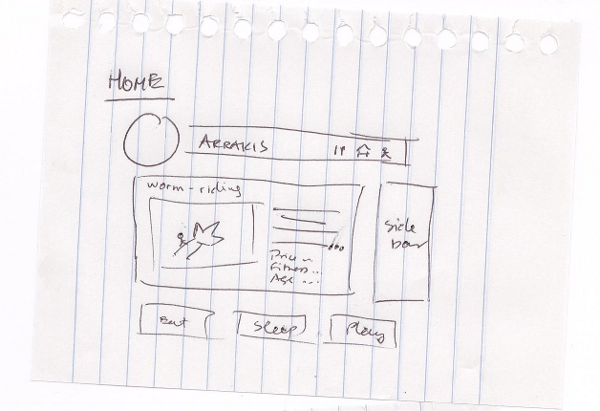 HOME
ARRAKIS
worm-riding
Price ~
Fitness ..
Age ...
side
bar
Eat
Sleep
Play